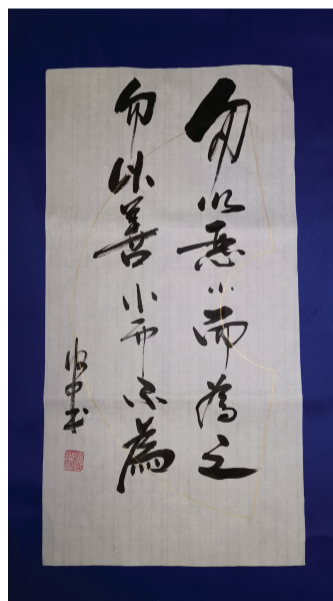 勿以恶小而為之
勿以善小而不為